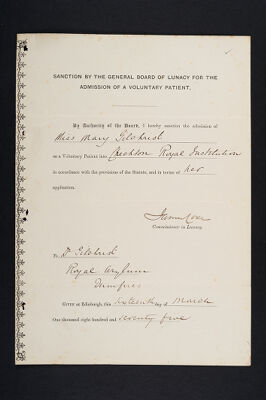 SANCTION BY THE GENERAL BOARD OF LUNACY FOR THE
ADMISSION OF A VOLUNTARY PATIENT.
By Authority of the Board, I hereby sanction the admission of
Miss Mary Gilchrist
as a Voluntary Patient into Crichton Royal Institution
in accordance with the provisions of the Statute, and in terms of her
application.
Commissioner in Lunacy.
To Dr Gilchrist
Royal Asylum
Dumfries
GIVEN at Edinburgh, this sixteenth day of March
One thousand eight hundred and seventy five